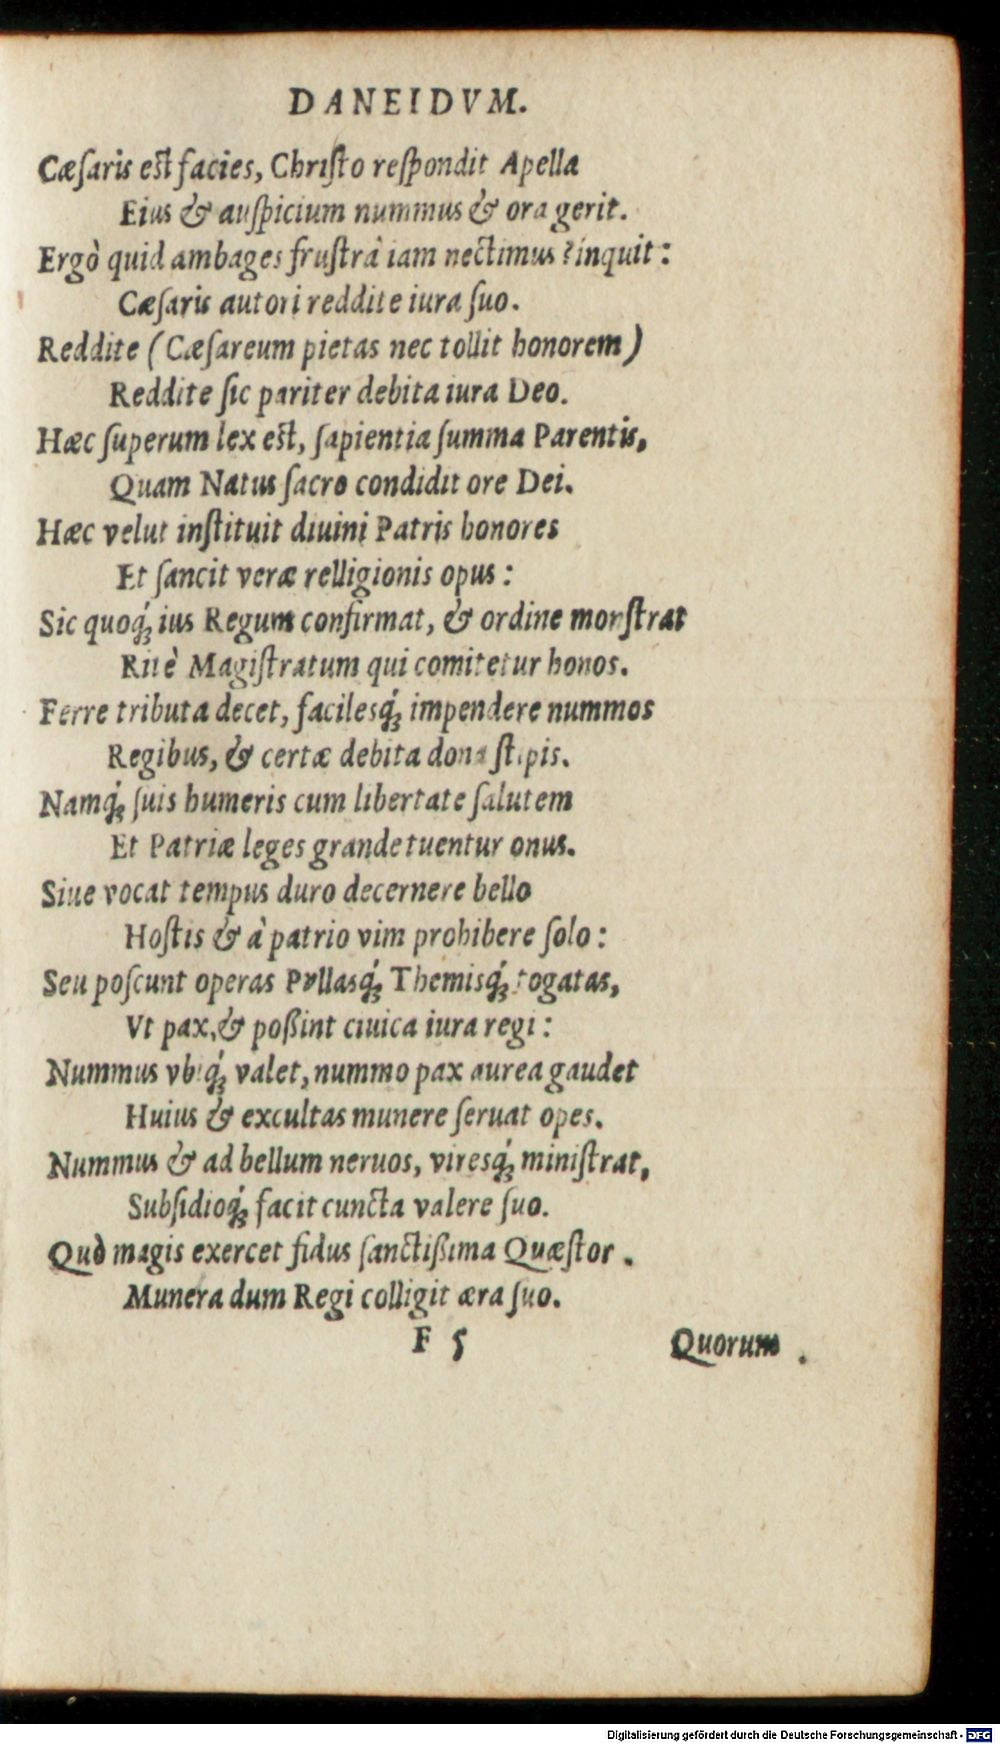 DANEIDVM.
Cæſaris eſt facies, Chriſto reſpondit Apella
Eius & auſpicium nummus & ora gerit.
Ergò quid ambages fruſtrà iam nectimus? inquit:
Cæſaris autori reddite iura ſuo.
Reddite (Cæſareum pietas nec tollit honorem)
Reddite ſic pariter debita iura Deo.
Hæc ſuperum lex eſt, ſapientia ſumma Parentis,
Quam Natus ſacro condidit ore Dei.
Hæc velut inſtituit diuini Patris honores
Et ſancit veræ relligionis opus:
Sic quoq́; ius Regum confirmat, & ordine monſtrat
Ritè Magiſtratum qui comitetur honos.
Ferre tributa decet, facilesq́; impendere nummos
Regibus, & certæ debita dona ſtipis.
Namq́; ſuis humeris cum libertate ſalutem
Et Patriæ leges grande tuentur onus.
Siue vocat tempus duro decernere bello
Hoſtis & à patrio vim prohibere ſolo:
Seu poſcunt operas Pallasq́; Themisq́; togatas,
Vt pax, & poßint ciuica iura regi:
Nummus vbiq́; valet, nummo pax aurea gaudet
Huius & excultas munere ſeruat opes.
Nummus & ad bellum neruos, viresq́; miniſtrat,
Subſidioq́; facit cuncta valere ſuo.
Quò magis exercet fidus ſanctißima Quæſtor.
Munera dum Regi colligit æra ſuo.
F 5 Quorum
Digitalisierung gefördert durch die Deutsche Forschungsgemeinschaft - DFG